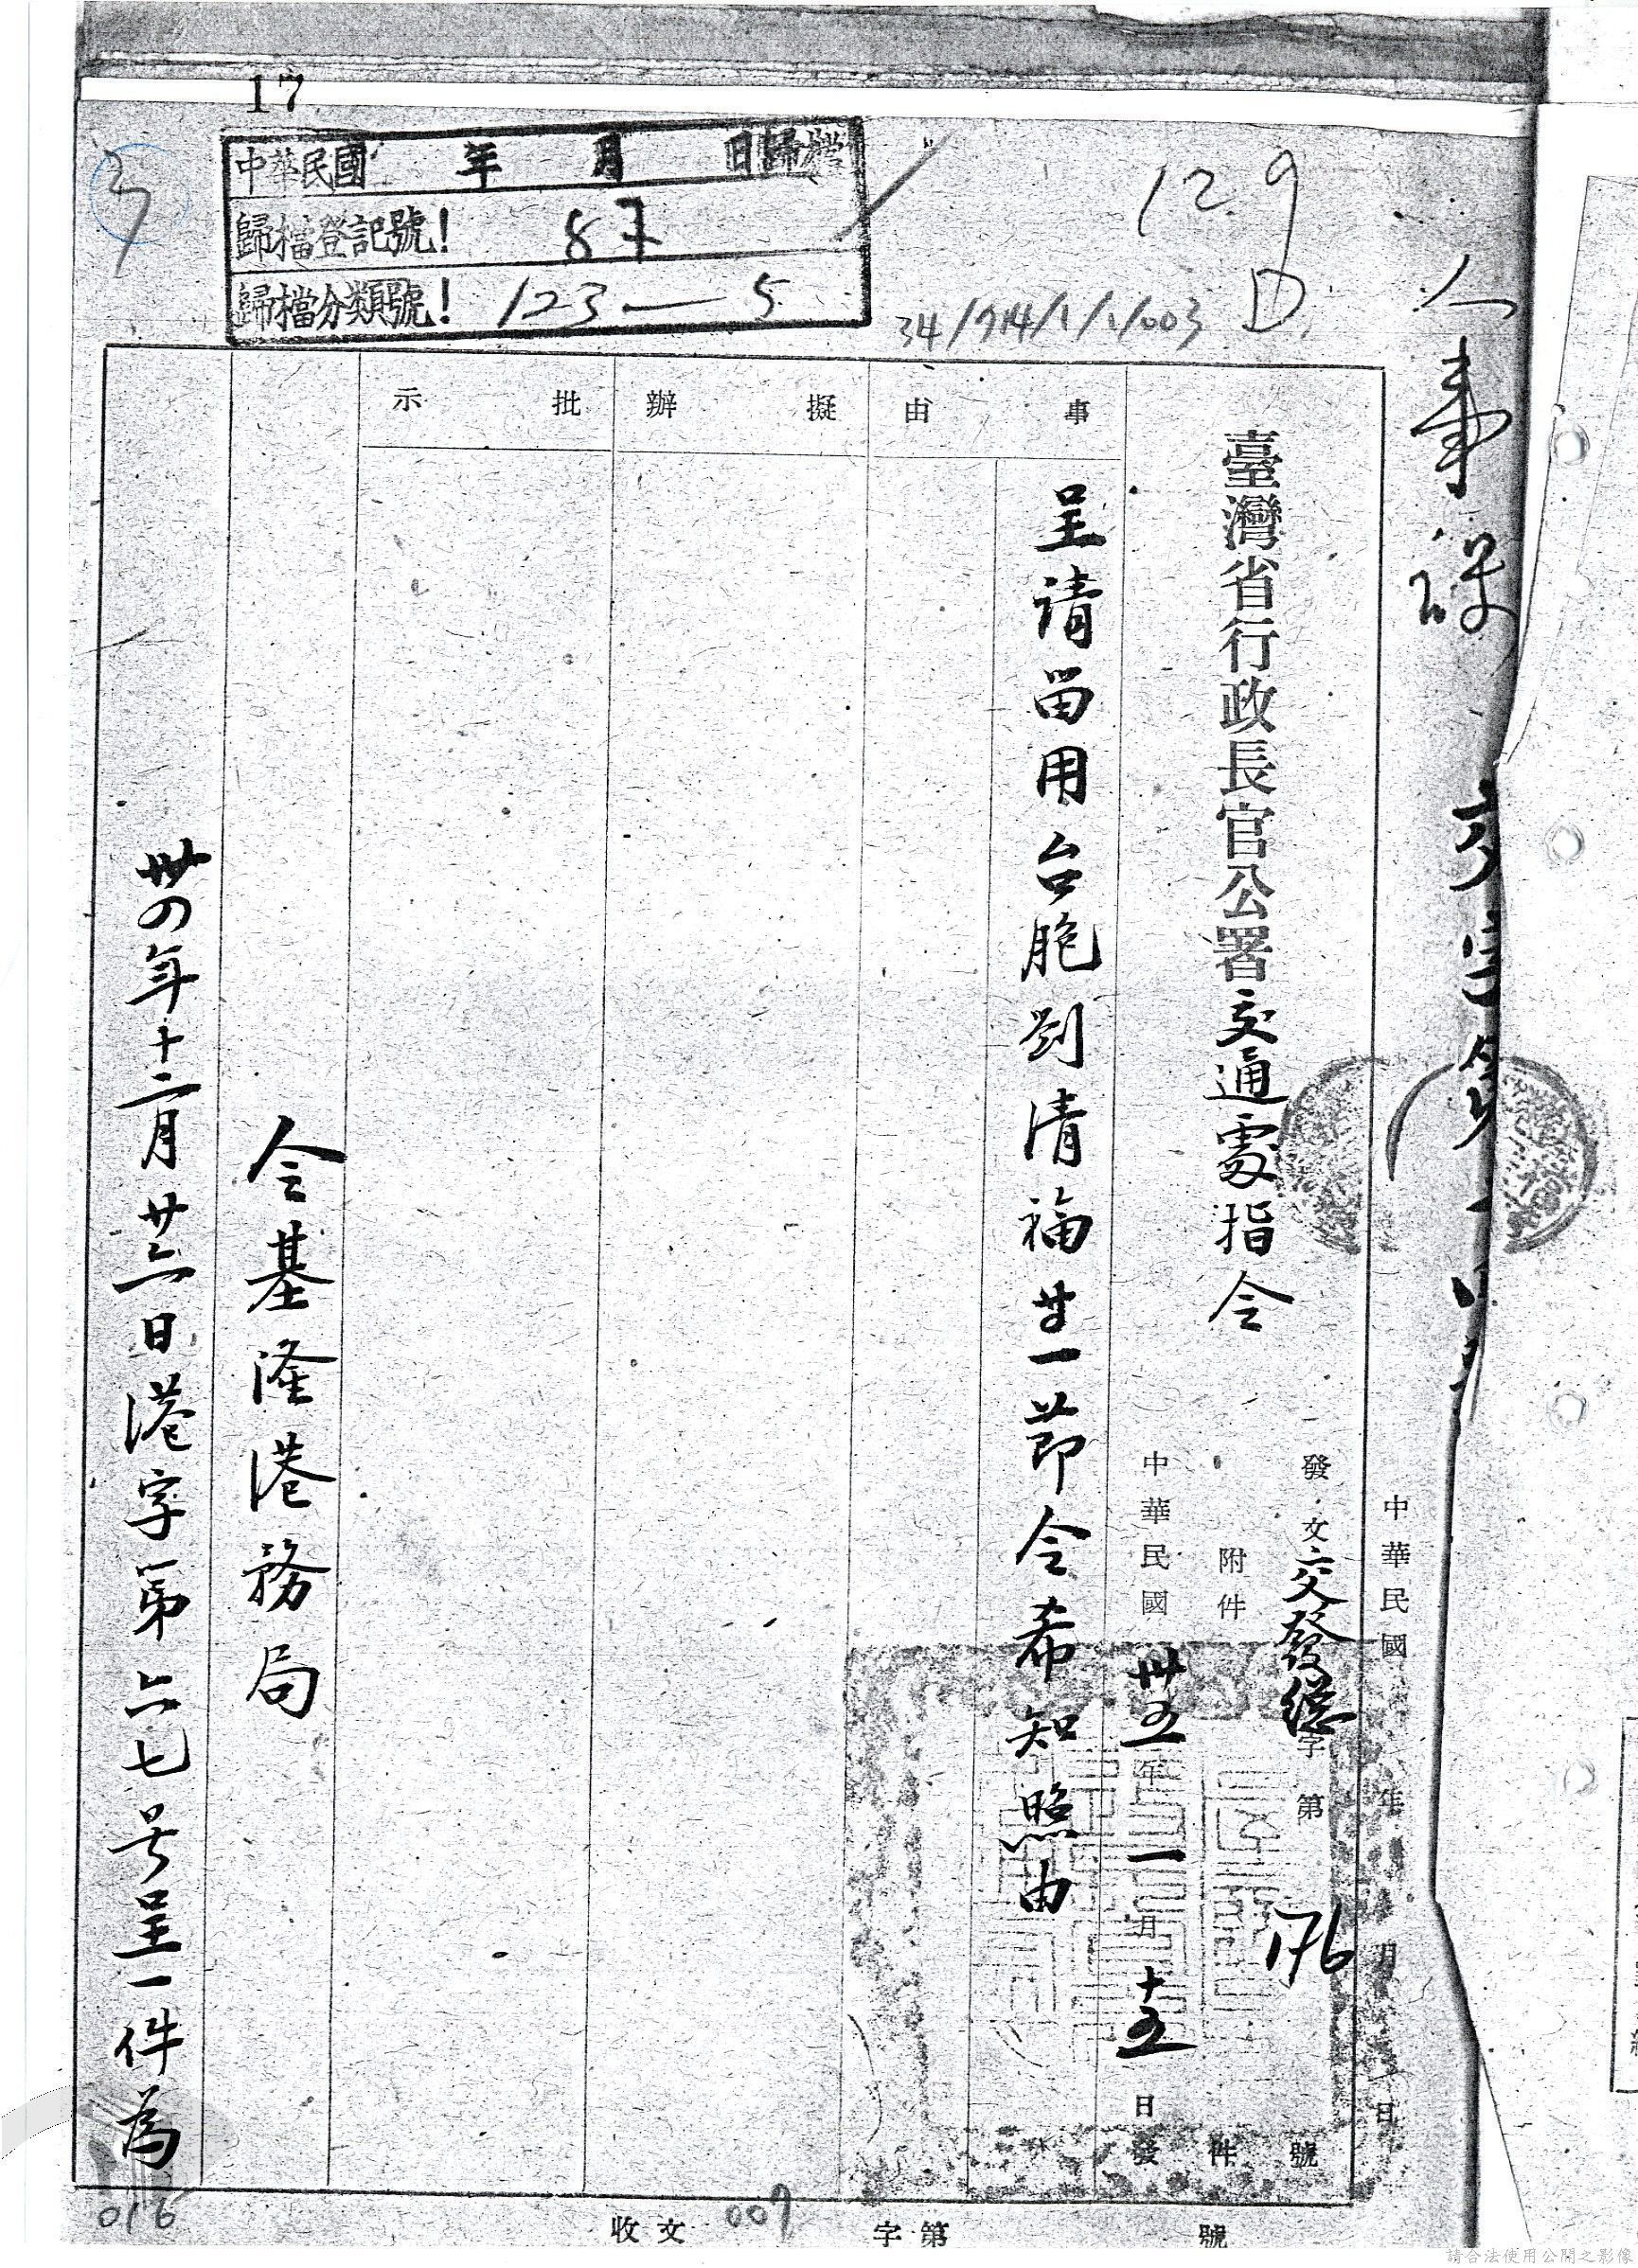 17
中華民國 年 月 日歸檔
歸檔登記號! 87
歸檔分類號! 123—5
129
D
34/714/1/1/003
人事課
臺灣省行政長官公署交通處指令
中華民國 年 月 日
發文交發總字第 176 號
附件 件
中華民國卅五年一月十五日發
事由
呈請留用台胞劉清福等一節令希知照由
擬辦
批示
令基隆港務局
卅四年十二月廿六日港字第六七号呈一件為
收文 字第 號
007
016
請合法使用公開之影像